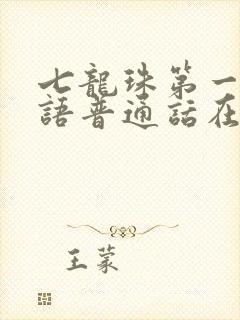 七龍珠第一
語普通話在
王蒙